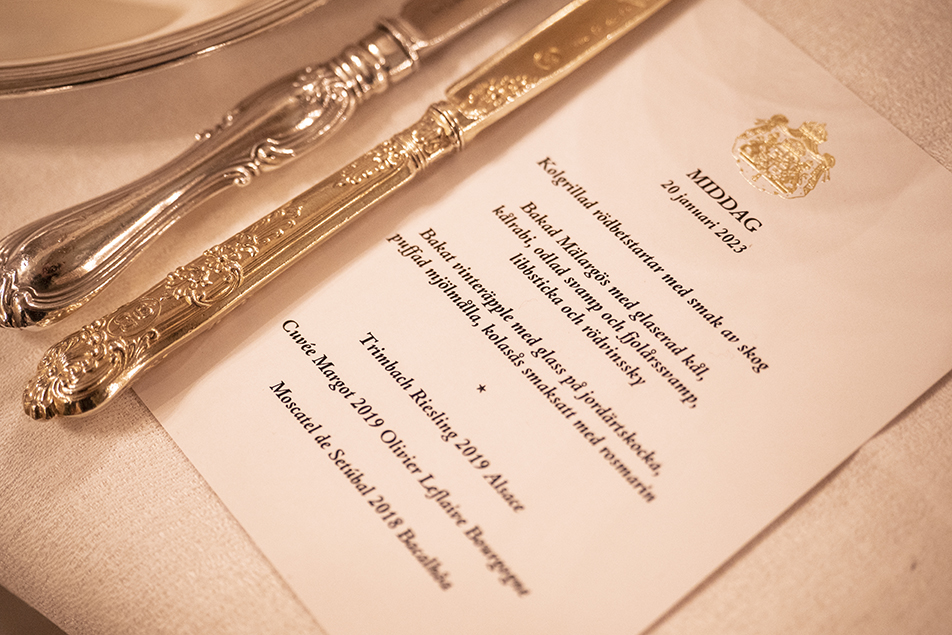 MIDDAG
20 januari 2023
Kolgrillad rödbetstartar med smak av skog
Bakad Mälargös med glaserad kål,
kålrabi, odlad svamp och fjolårssvamp,
libbsticka och rödvinssky
Bakat vinteräpple med glass på jordärtskocka,
puffad mjölmålla, kolasås smaksatt med rosmarin
*
Trimbach Riesling 2019 Alsace
Cuvée Margot 2019 Olivier Leflaive Bourgogne
Moscatel de Setúbal 2018 Bacalhôa